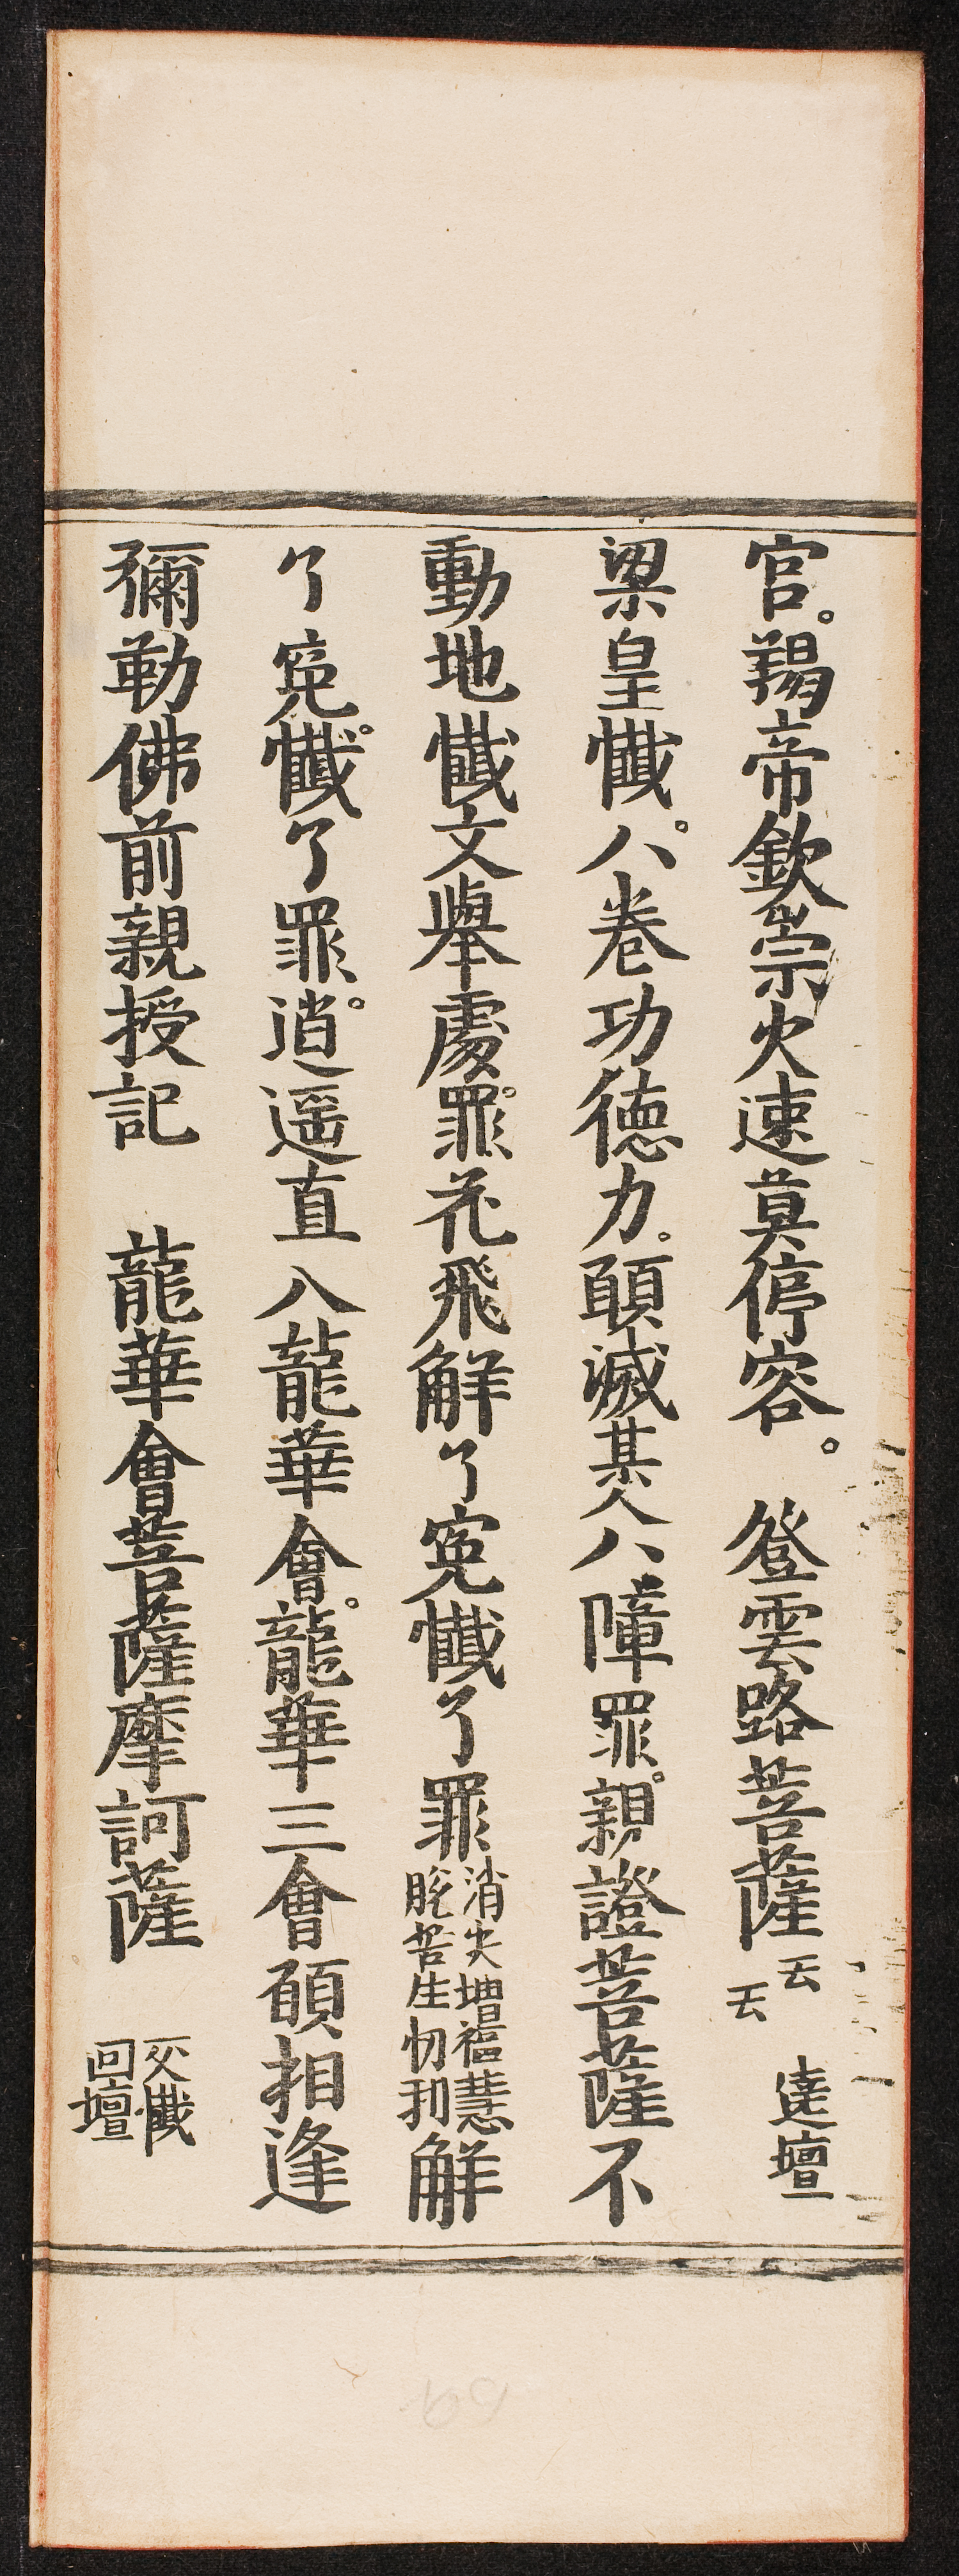 官。羯帝欽崇火速莫停容。　登雲路菩薩云云　達壇
梁皇懺。八卷功德力。願滅某人八障罪。親證菩薩不
動地懺文舉處。罪花飛解了寃懺了罪消灾增福慧脫苦生忉利解
了寃。懺了罪。逍遥直八龍華會。龍華三會願相逢
彌勒佛前親授記　龍華會菩薩摩訶薩　收懺回壇